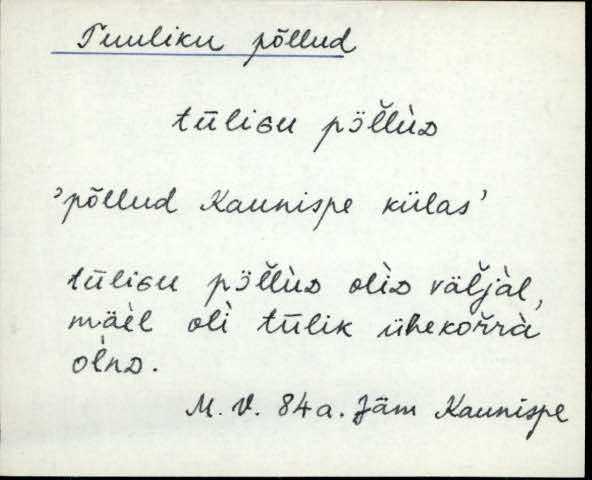 Tuuliku põllud
tūliɢu pɔ̈l̆lùᴅ
'põllud Kaunispe külas'
tūliɢu pɔ̈l̆lùᴅ olìᴅ väl̆jàl,
mäèl olì tūlik ühekor̆rà
olnᴅ.
M. V. 84a. Jäm Kaunispe